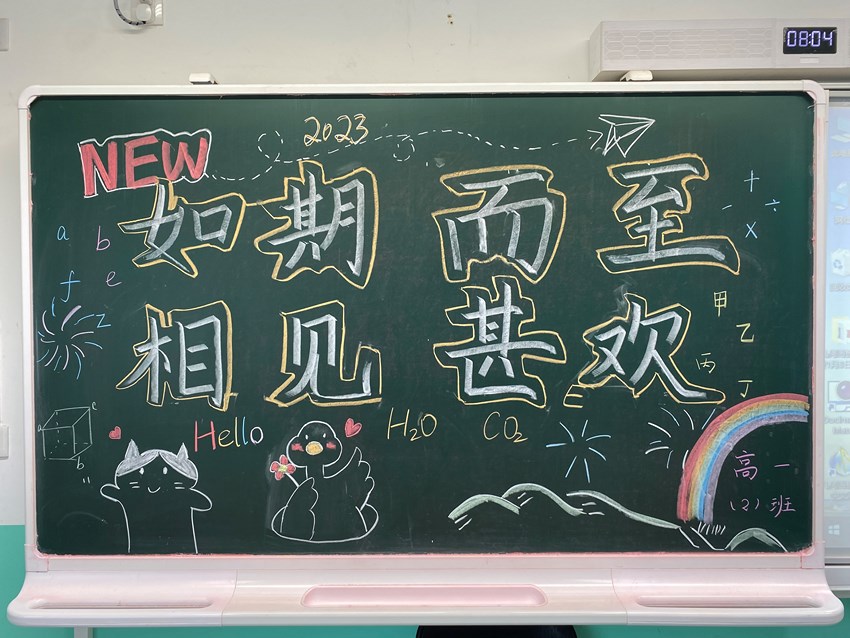 08:04
2023
NEW
如期而至
+
- ÷
x
a b
f e
i z
相见甚欢
甲
乙
丙
丁
Hello
H₂O CO₂
c
a
b
高一
(2)班